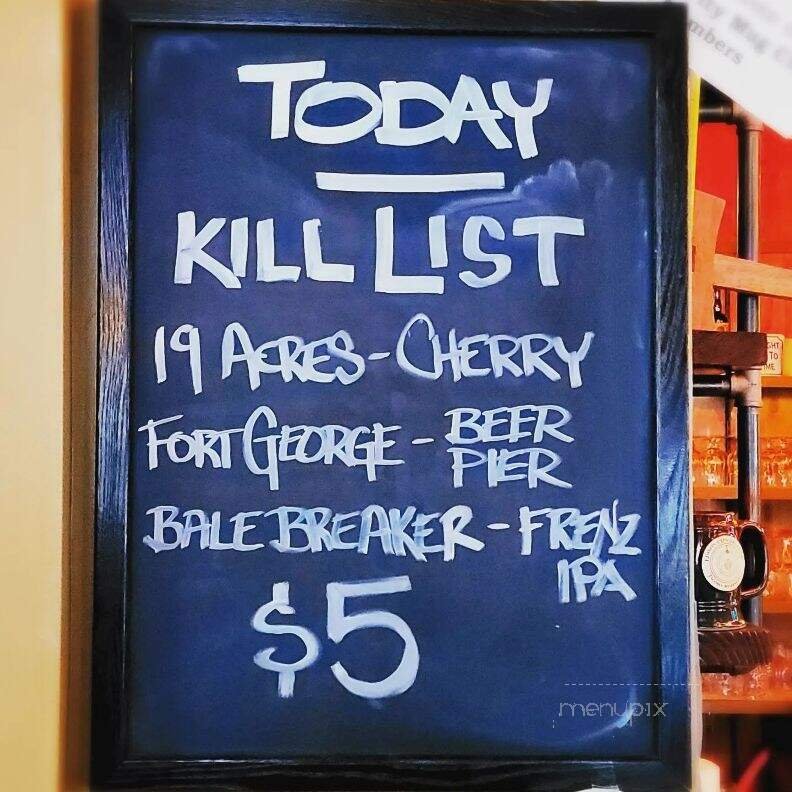 TODAY
KILL LIST
19 ACRES - CHERRY
FORT GEORGE - BEER
PIER
BALE BREAKER - FRENZ
IPA
$5
menupix